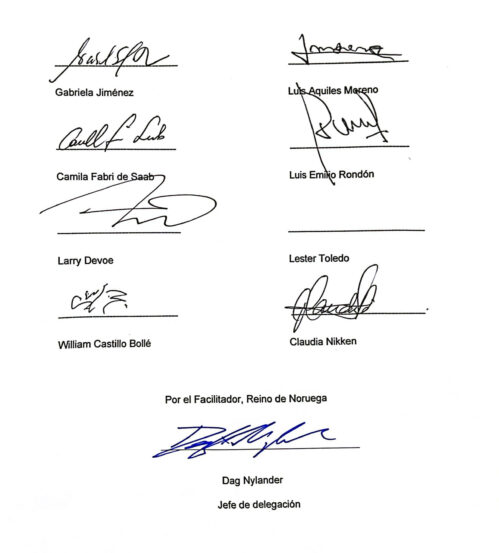 Gabriela Jiménez
Luis Aquiles Moreno
Camila Fabri de Saab
Luis Emilio Rondón
Larry Devoe
Lester Toledo
William Castillo Bollé
Claudia Nikken
Por el Facilitador, Reino de Noruega
Dag Nylander
Jefe de delegación